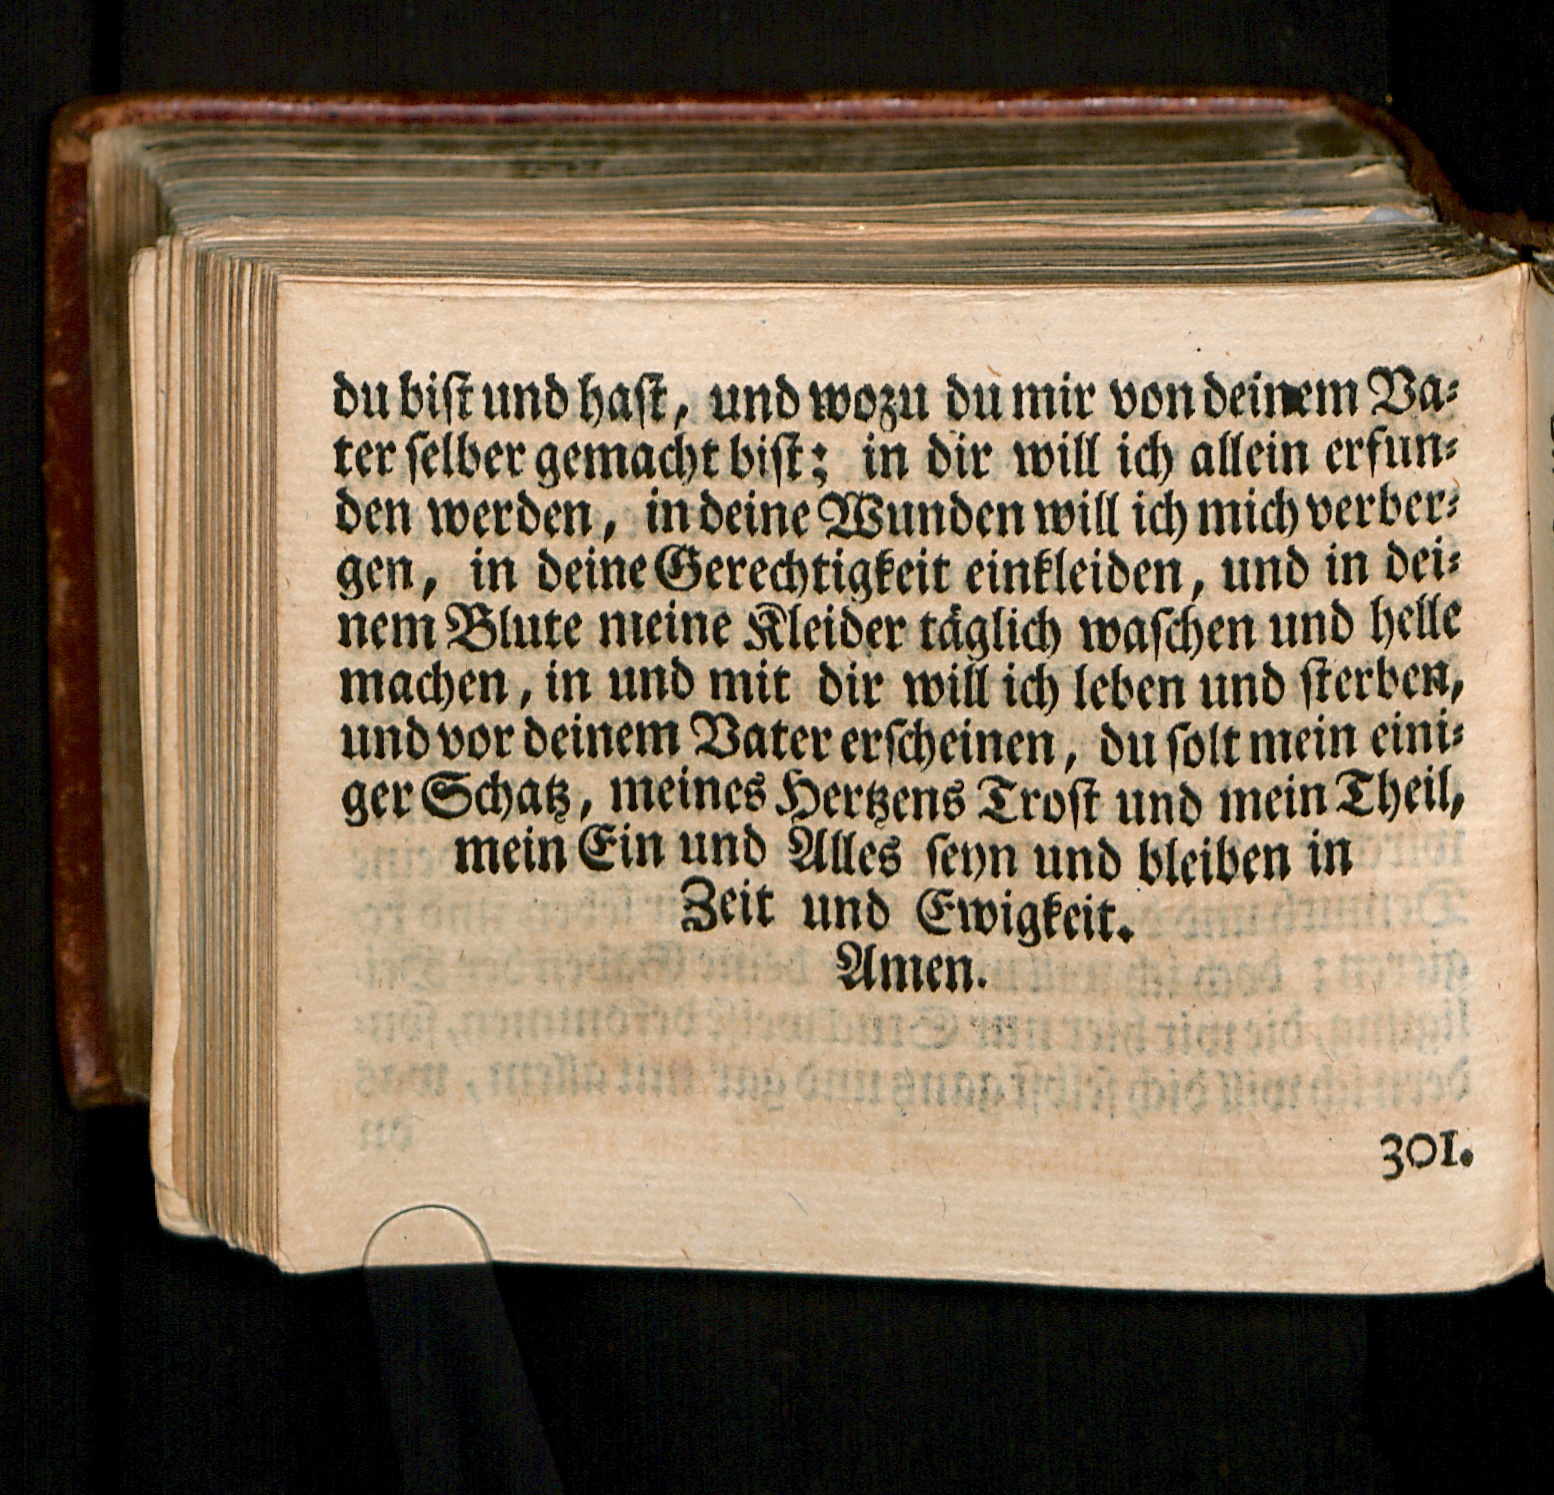 du biſt und haſt, und wozu du mir von deinem Va⸗
ter ſelber gemacht biſt; in dir will ich allein erfun⸗
den werden, in deine Wunden will ich mich verber⸗
gen, in deine Gerechtigkeit einkleiden, und in dei⸗
nem Blute meine Kleider täglich waſchen und helle
machen, in und mit dir will ich leben und ſterben,
und vor deinem Vater erſcheinen, du ſolt mein eini⸗
ger Schatz, meines Hertzens Troſt und mein Theil,
mein Ein und Alles ſeyn und bleiben in
Zeit und Ewigkeit.
Amen.
301.